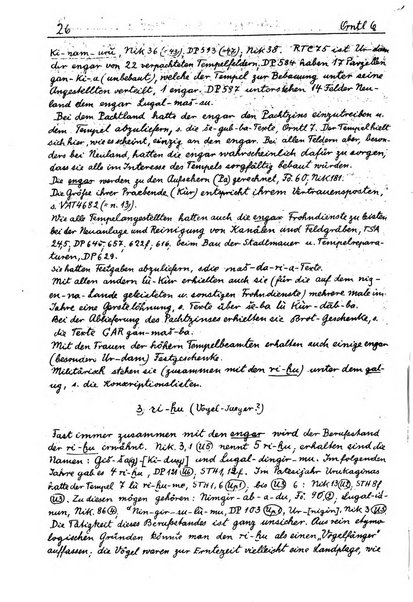 26 Orntl 6
Ki-nam-uru, Nik 36 (-43), DP 593 (-47), Nik 38. RTC 75 ist Ur-dam
der engar von 22 verpachteten Tempelfeldern, DP 584 haben 17 Parzellen
gan-ki-a (unbebaut), welche der Tempel zur Bebauung unter seine
Angestellten verteilt, 1 engar. DP 587 unterstehen 14 Felder Neu-
land dem engar Lugal-maš-su.
Bei dem Pachtland hatte der engar den Pachtzins einzutreiben u.
dem Tempel abzuliefern, s. die še-gub-ba-Texte, Orntl 7. Der Tempel hielt
sich hier, wie es scheint, einzig an den engar. Bei allen Feldern aber, beson-
ders bei Neuland, hatten die engar wahrscheinlich dafür zu sorgen,
dass sie alle im Interesse des Tempels sorgfältig bebaut wurden.
Die engar werden zu den Aufsehern (Pa) gerechnet, Fö. 60; Nik 181.
Die Größe ihrer Praebende (Kur) entspricht ihrem Vertrauensposten,
s. VAT 4682 (= n. 13).
Wie alle Tempelangestellten hatten auch die engar Frohndienste zu leisten
bei der Neuanlage und Reinigung von Kanälen und Feldgräben, TSA
24,5, DP 646, 657, 622f, 616, beim Bau der Stadtmauer u. Tempelrepara-
turen, DP 629.
Sie hatten Festgaben abzuliefern, s. die maš-da-ri-a-Texte.
Mit allen andern lú-Kur erhielten auch sie (für die auf dem nig-
en-na-Land geleisteten u. sonstigen Frohndienste) mehrere male im
Jahre eine Gerstelöhnung, s. Texte über še-ba lú Kur-dúb-ba.
Bei der Ablieferung des Pachtzinses erhielten sie Brot-Geschenke, s.
die Texte GAR gan-maš-ba.
Mit den Frauen der höhern Tempelbeamten erhalten auch einige engar
(besonders Ur-dam) Festgeschenke.
Militärisch stehen sie (zusammen mit den ri-ḫu) unter dem gal-
ug, s. die Konscriptionslisten.
3 ri-ḫu (Vogel-Jaeger?)
Fast immer zusammen mit den engar wird der Berufsstand
der ri-ḫu erwähnt. Nik. 3,1 (U5) nennt 5 ri-ḫu, erhalten sind die
Namen: und Lugal-dingir-mu. Im folgenden
Jahre gab es 4 ri-ḫu, DP 121 STH 1, Im Patesijahr Urukaginas
hatte der Tempel 7 lú ri-ḫu-me, STH 1,6 (Up1), bis 6: Nik 13 STH 8f
Zu diesen mögen gehören: Nimgir-ab-a-du, Fö. 90 Lugal-id-
nun, Nik. 86 ᵈNin-gir-su-lú-mu, DP 103 (Up1), Nik 3
Die Tätigkeit dieses Berufsstandes ist ganz unsicher. Aus rein etymo-
logischen Gründen könnte man den ri-ḫu als einen „Vogelfänger"
auffassen; die Vögel waren zur Erntezeit vielleicht eine Landplage, wie